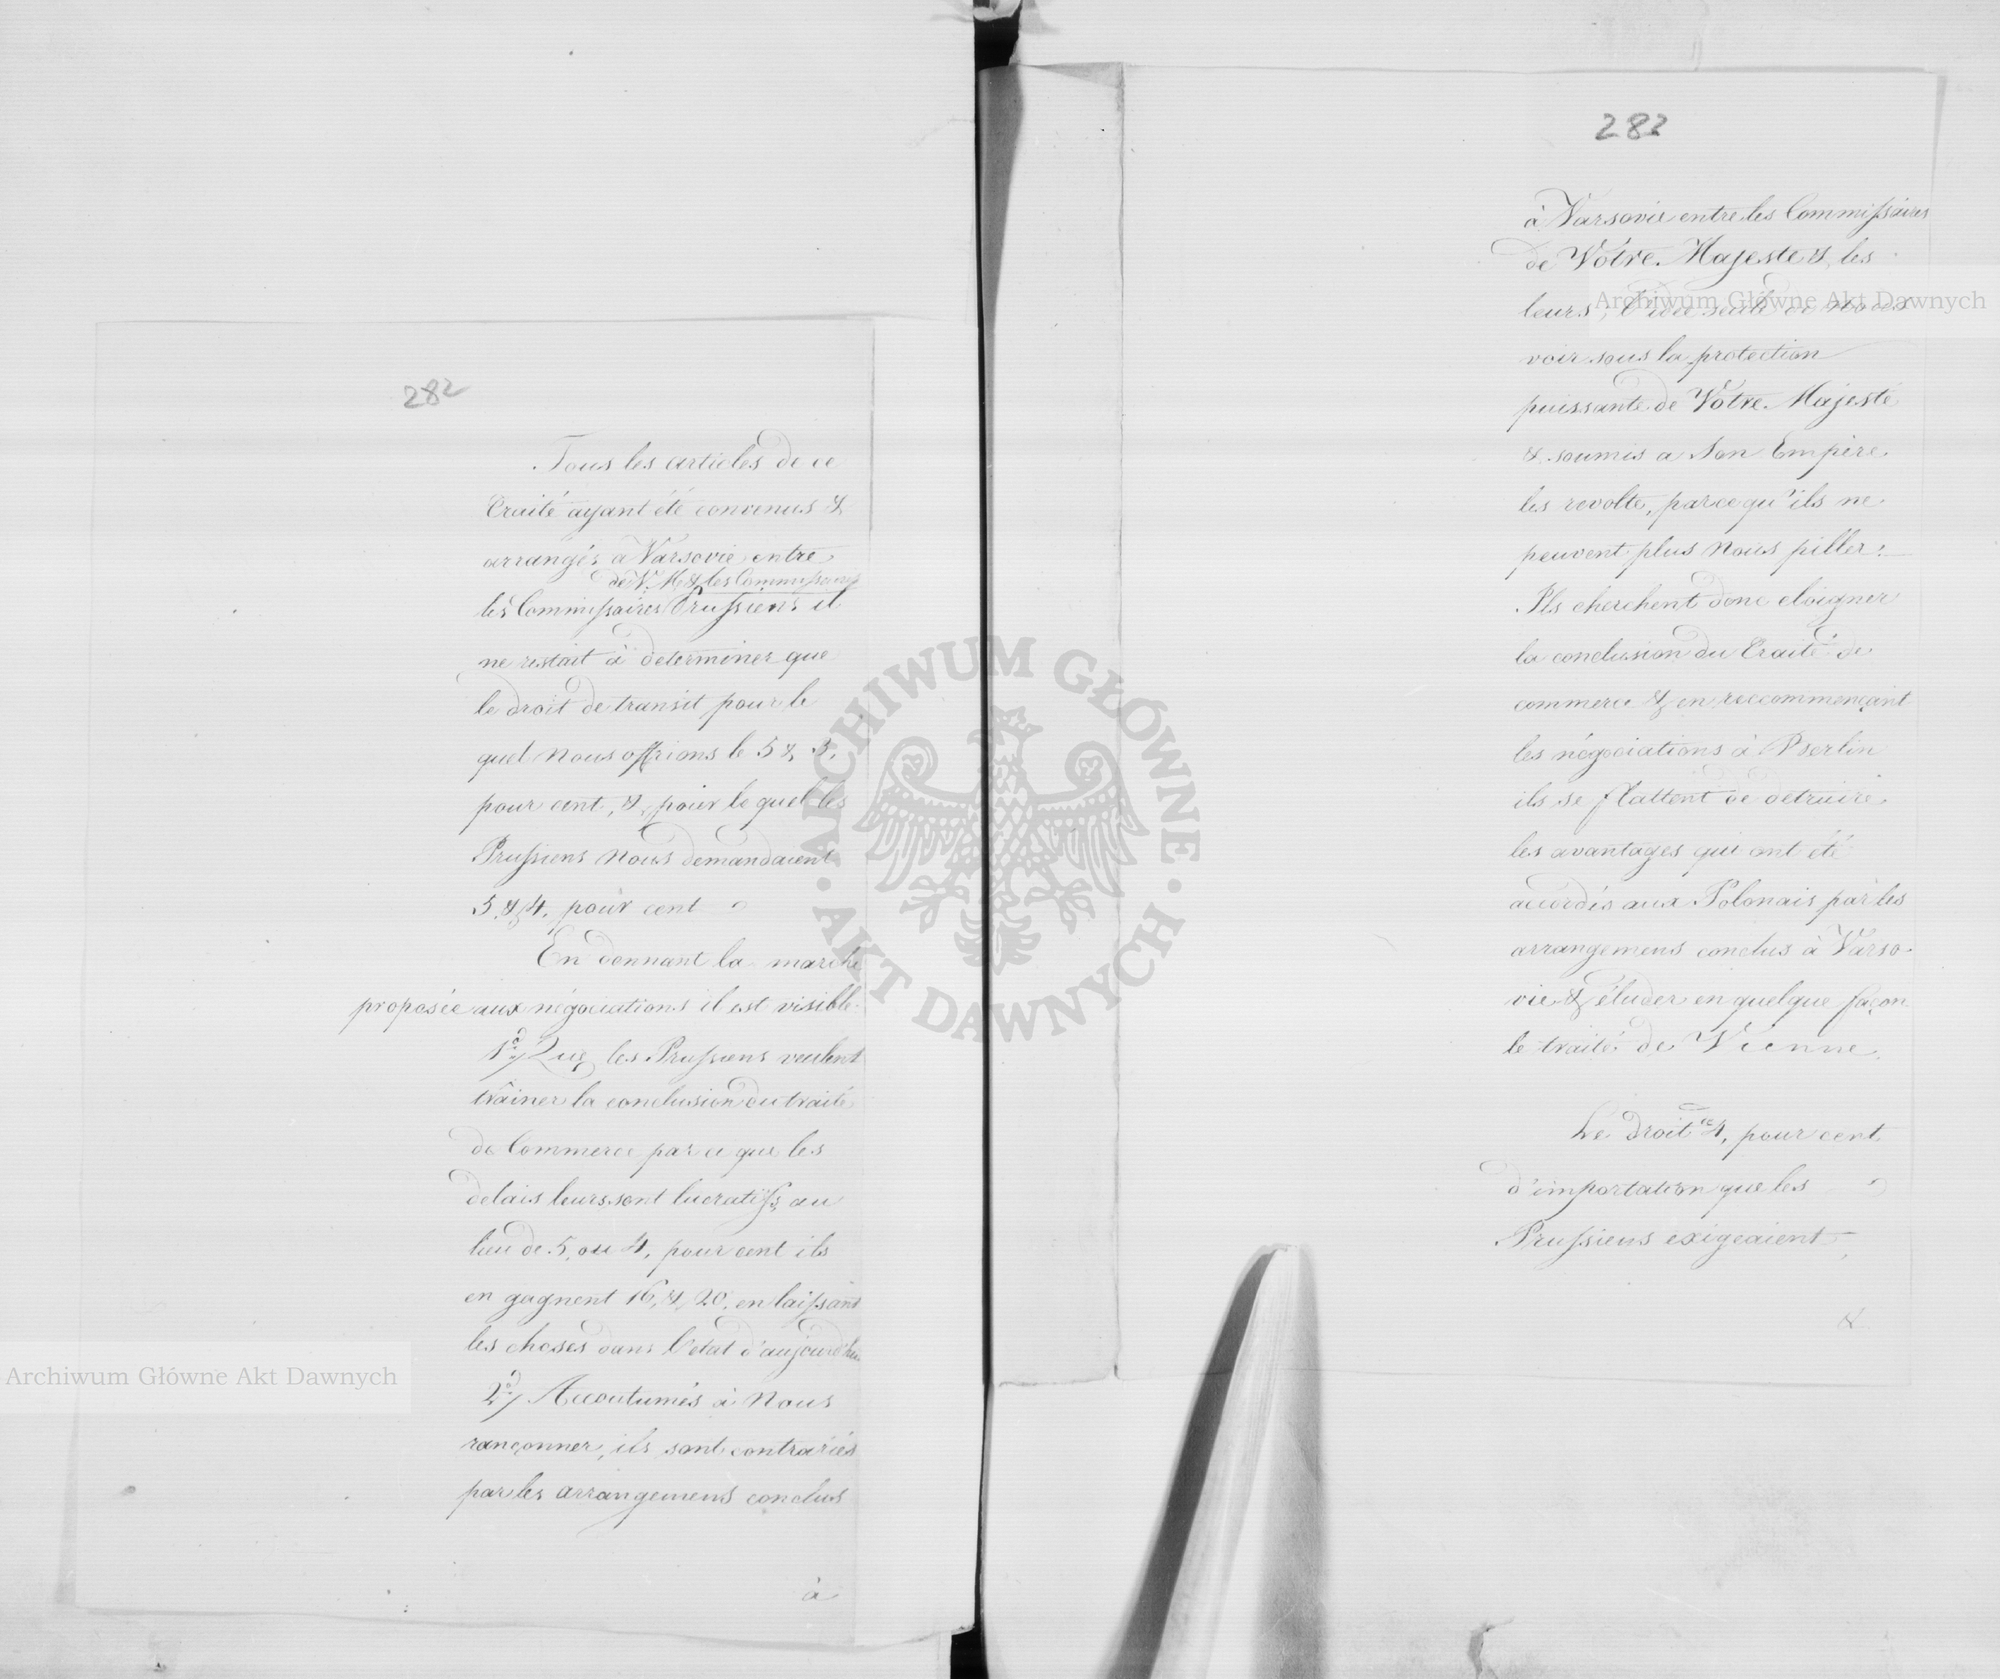 282
Tous les articles de ce
Traité ayant été convenus &
arrangés a Varsovie entre
de V. M. & les Commissaires
les Commissaires Prussiens il
ne restait à determiner que
le droit de transit pour le
quel Nous offrions le 5 & 3,
pour cent, & pour lequel les
Prussiens Nous demandaient
5, & 4, pour cent
En donnant la marche
proposée aux négociations il est visible
1o Que les Prussiens veulent
trâiner la conclusion du traité
de Commerce par ce que les
delais leurs sont lucratifs, au
lieu de 5, ou 4, pour cent ils
en gagnent 16, & 20, en laissant
les choses dans l'etat d'aujourd'hui
2o Accoutumés à Nous
rançonner, ils sont contrariés
par les arrangemens conclus
à
282
à Varsovie entre les Commissaires
de Vôtre Majesté & les
leurs, l'idée seule de Nous
voir sous la protection
puissante de Vôtre Majesté
& soumis a Son Empire
les revolte, parcequ'ils ne
peuvent plus Nous piller.
Ils cherchent donc eloigner
la conclusion du Traité de
commerce & en reccommençant
les négociations à Berlin
ils se flattent de detruire
les avantages qui ont été
accordés aux Polonais par les
arrangemens conclus à Varso-
vie & éluder en quelque façon
le traité de Vienne.
Le droit de 4, pour cent
d'importation que les
Prussiens exigeaient
&
Archiwum Główne Akt Dawnych
Archiwum Główne Akt Dawnych
ARCHIWUM GŁÓWNE AKT DAWNYCH